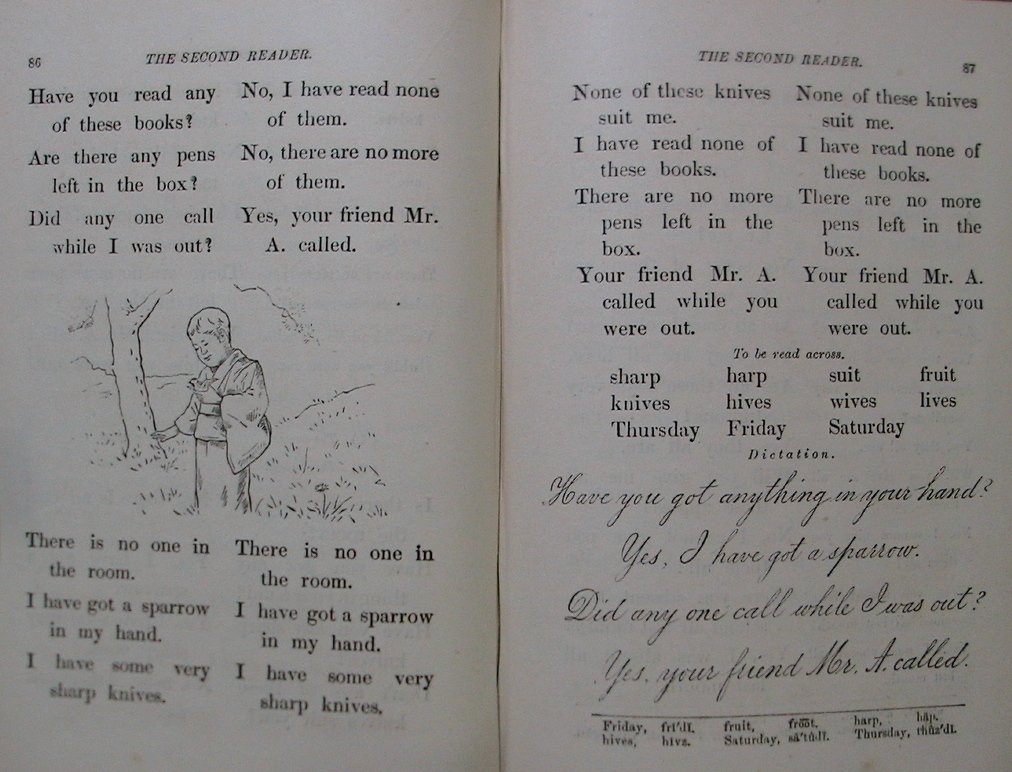 86
THE SECOND READER.
Have you read any
of these books?
No, I have read none
of them.
Are there any pens
left in the box?
No, there are no more
of them.
Did any one call
while I was out?
Yes, your friend Mr.
A. called.
There is no one in
the room.
There is no one in
the room.
I have got a sparrow
in my hand.
I have got a sparrow
in my hand.
I have some very
sharp knives.
I have some very
sharp knives.
THE SECOND READER.
87
None of these knives
suit me.
None of these knives
suit me.
I have read none of
these books.
I have read none of
these books.
There are no more
pens left in the
box.
There are no more
pens left in the
box.
Your friend Mr. A.
called while you
were out.
Your friend Mr. A.
called while you
were out.
To be read across.
sharp harp suit fruit
knives hives wives lives
Thursday Friday Saturday
Dictation.
Have you got anything in your hand?
Yes, I have got a sparrow.
Did any one call while I was out?
Yes, your friend Mr. A. called.
Friday, frī'dĭ. fruit, fro͞ot. harp, häp.
hives, hīvz. Saturday, Thursday,